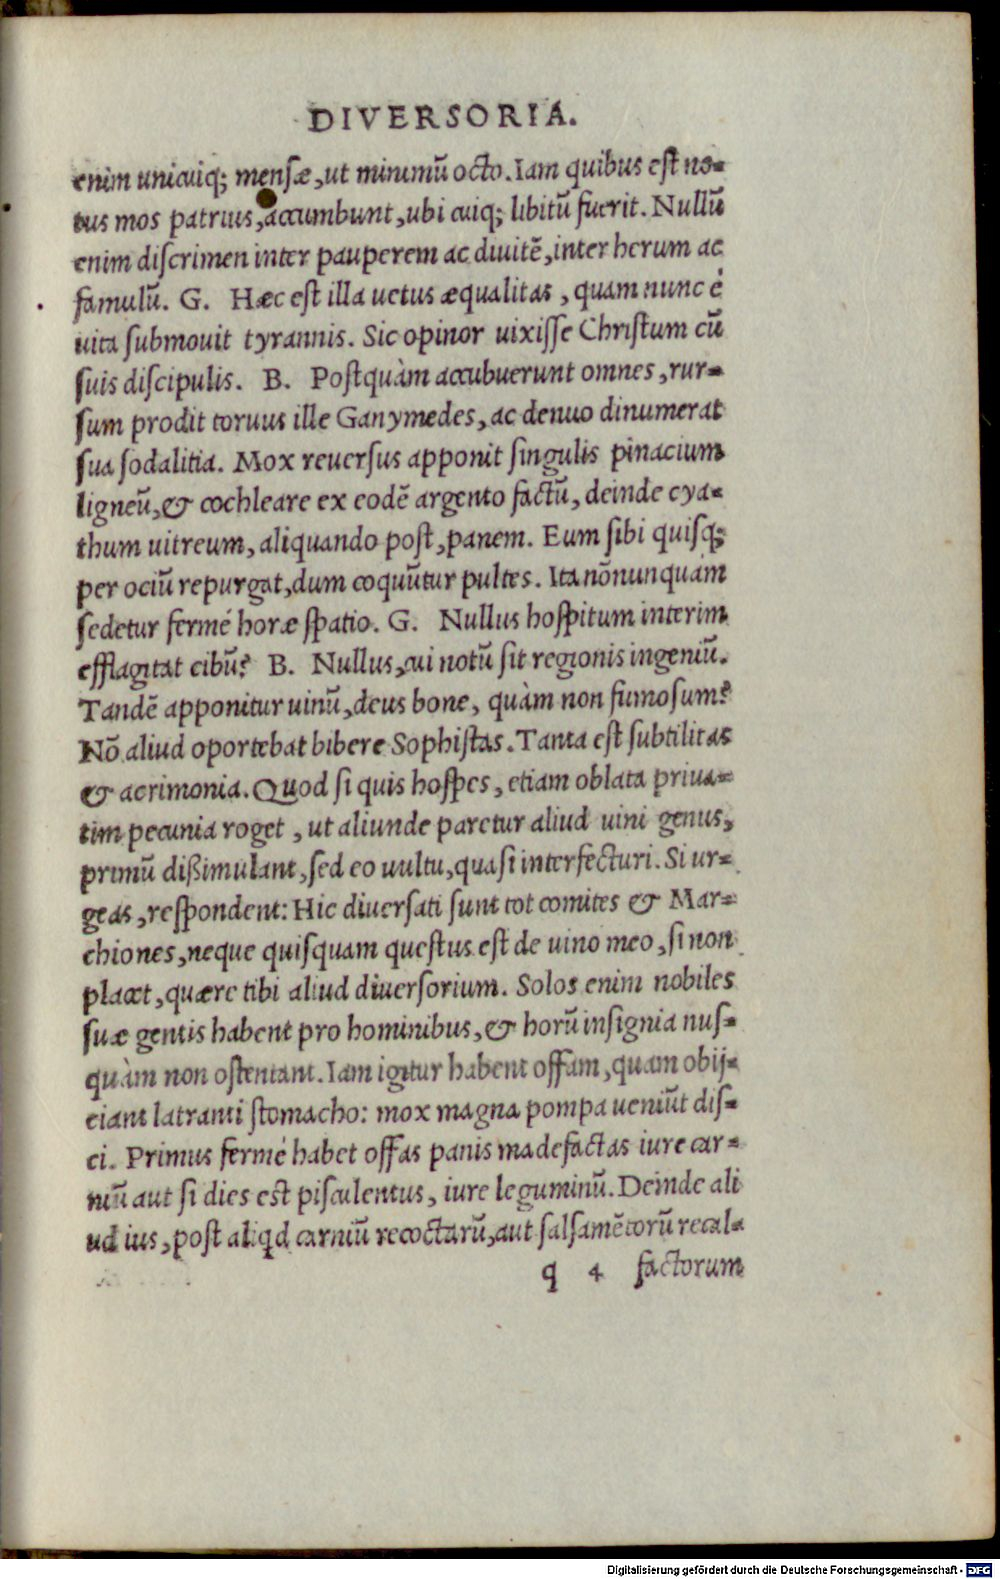 DIVERSORIA.
enim unicuiq; mensæ, ut minimũ octo. Iam quibus est no-
tus mos patrius, accumbunt, ubi cuiq; libitũ fuerit. Nullũ
enim discrimen inter pauperem ac diuitẽ, inter herum ac
famulũ. G. Hæc est illa uetus æqualitas, quam nunc é
uita submouit tyrannis. Sic opinor uixisse Christum cũ
suis discipulis. B. Postquàm accubuerunt omnes, rur-
sum prodit toruus ille Ganymedes, ac denuo dinumerat
sua sodalitia. Mox reuersus apponit singulis pinacium
ligneũ, & cochleare ex eodẽ argento factũ, deinde cya-
thum uitreum, aliquando post, panem. Eum sibi quisq;
per ociũ repurgat, dum coquũtur pultes. Ita nõnunquàm
sedetur fermé horæ spatio. G. Nullus hospitum interim
efflagitat cibũ? B. Nullus, cui notũ sit regionis ingeniũ.
Tandẽ apponitur uinũ, deus bone, quàm non fumosum?
Nõ aliud oportebat bibere Sophistas. Tanta est subtilitas
& acrimonia. Quod si quis hospes, etiam oblata priua-
tim pecunia roget, ut aliunde paretur aliud uini genus,
primũ dißimulant, sed eo uultu, quasi interfecturi. Si ur-
geas, respondent: Hic diuersati sunt tot comites & Mar-
chiones, neque quisquam questus est de uino meo, si non
placet, quære tibi aliud diuersorium. Solos enim nobiles
suæ gentis habent pro hominibus, & horũ insignia nus-
quàm non ostentant. Iam igitur habent offam, quam obij-
ciant latranti stomacho: mox magna pompa ueniũt dis-
ci. Primus fermé habet offas panis madefactas iure car-
niũ aut si dies est pisculentus, iure leguminũ. Deinde ali
ud ius, post aliqd carniũ recoctarũ, aut salsamẽtorũ recal-
q 4 factorum
Digitalisierung gefördert durch die Deutsche Forschungsgemeinschaft - DFG